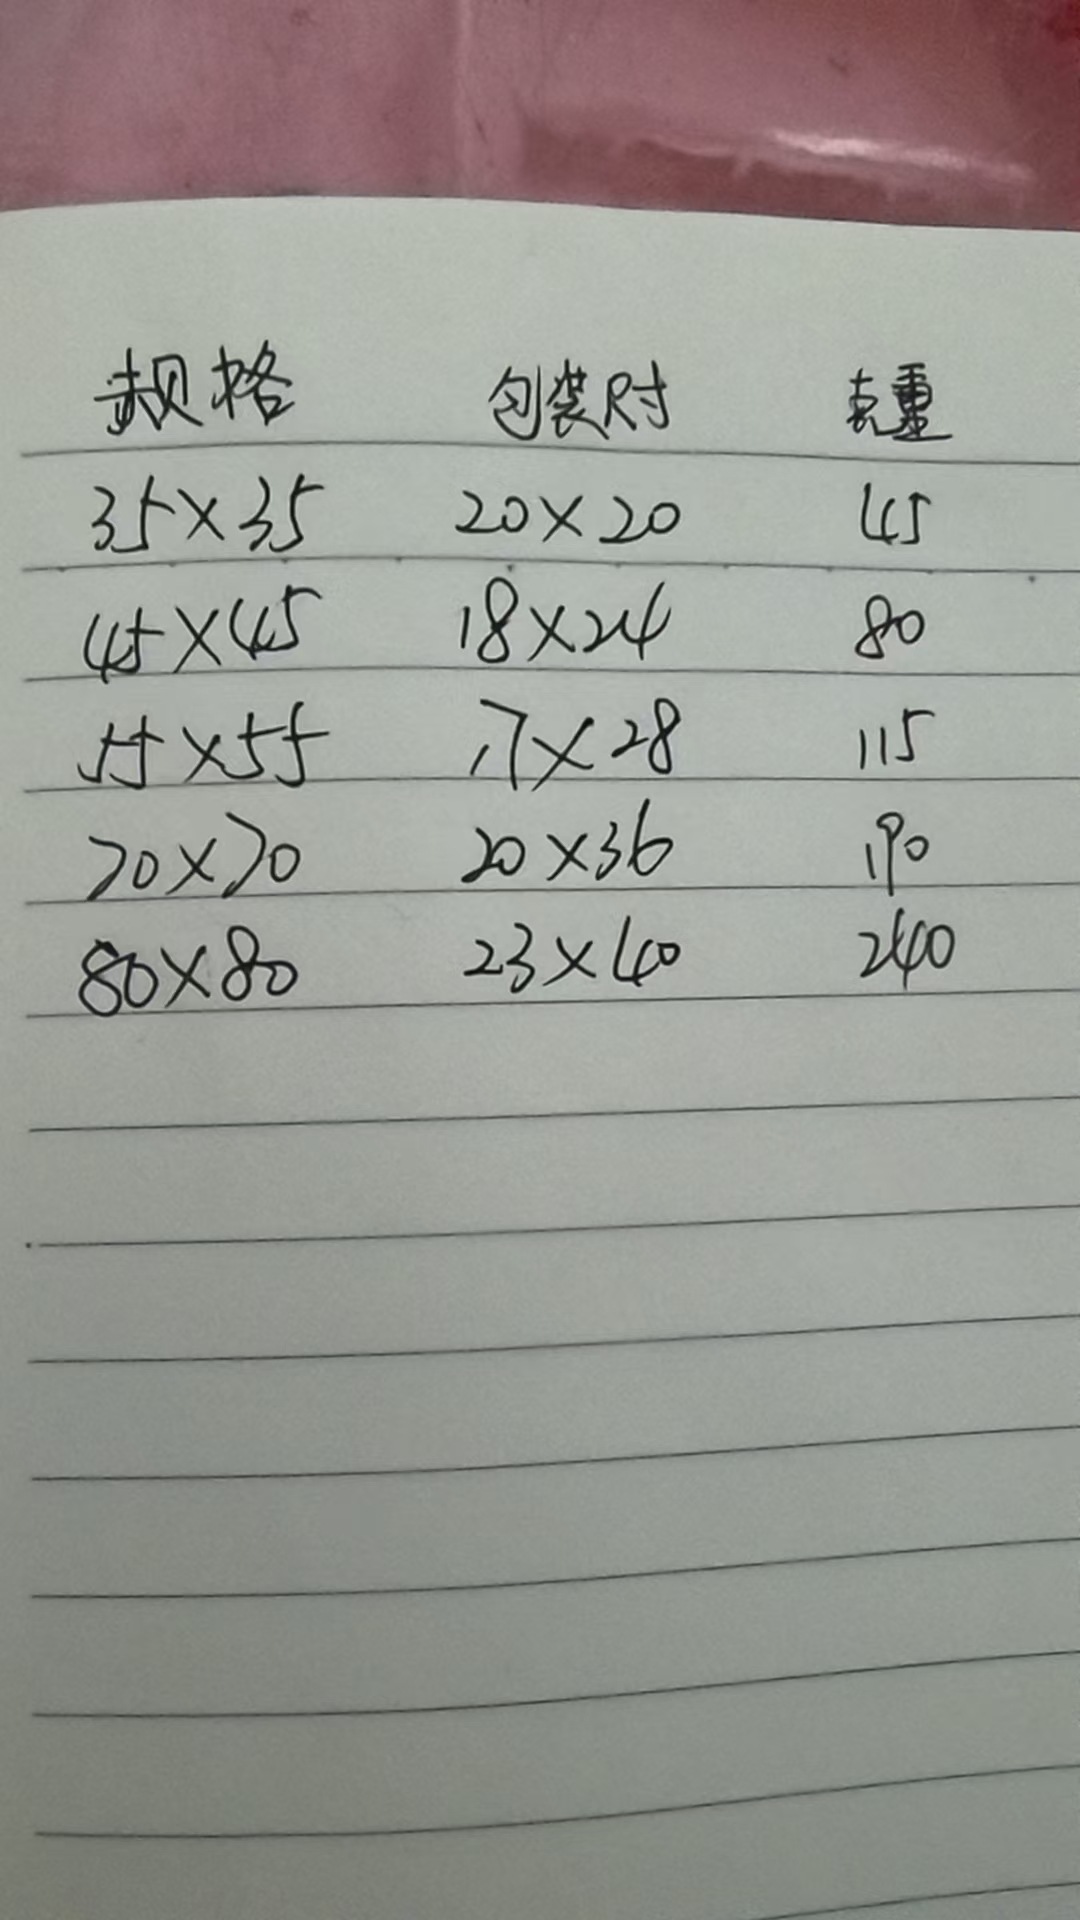 规格 包装尺寸 克重
35×35 20×20 45
45×45 18×24 80
55×55 17×28 115
70×70 20×36 190
80×80 23×40 240